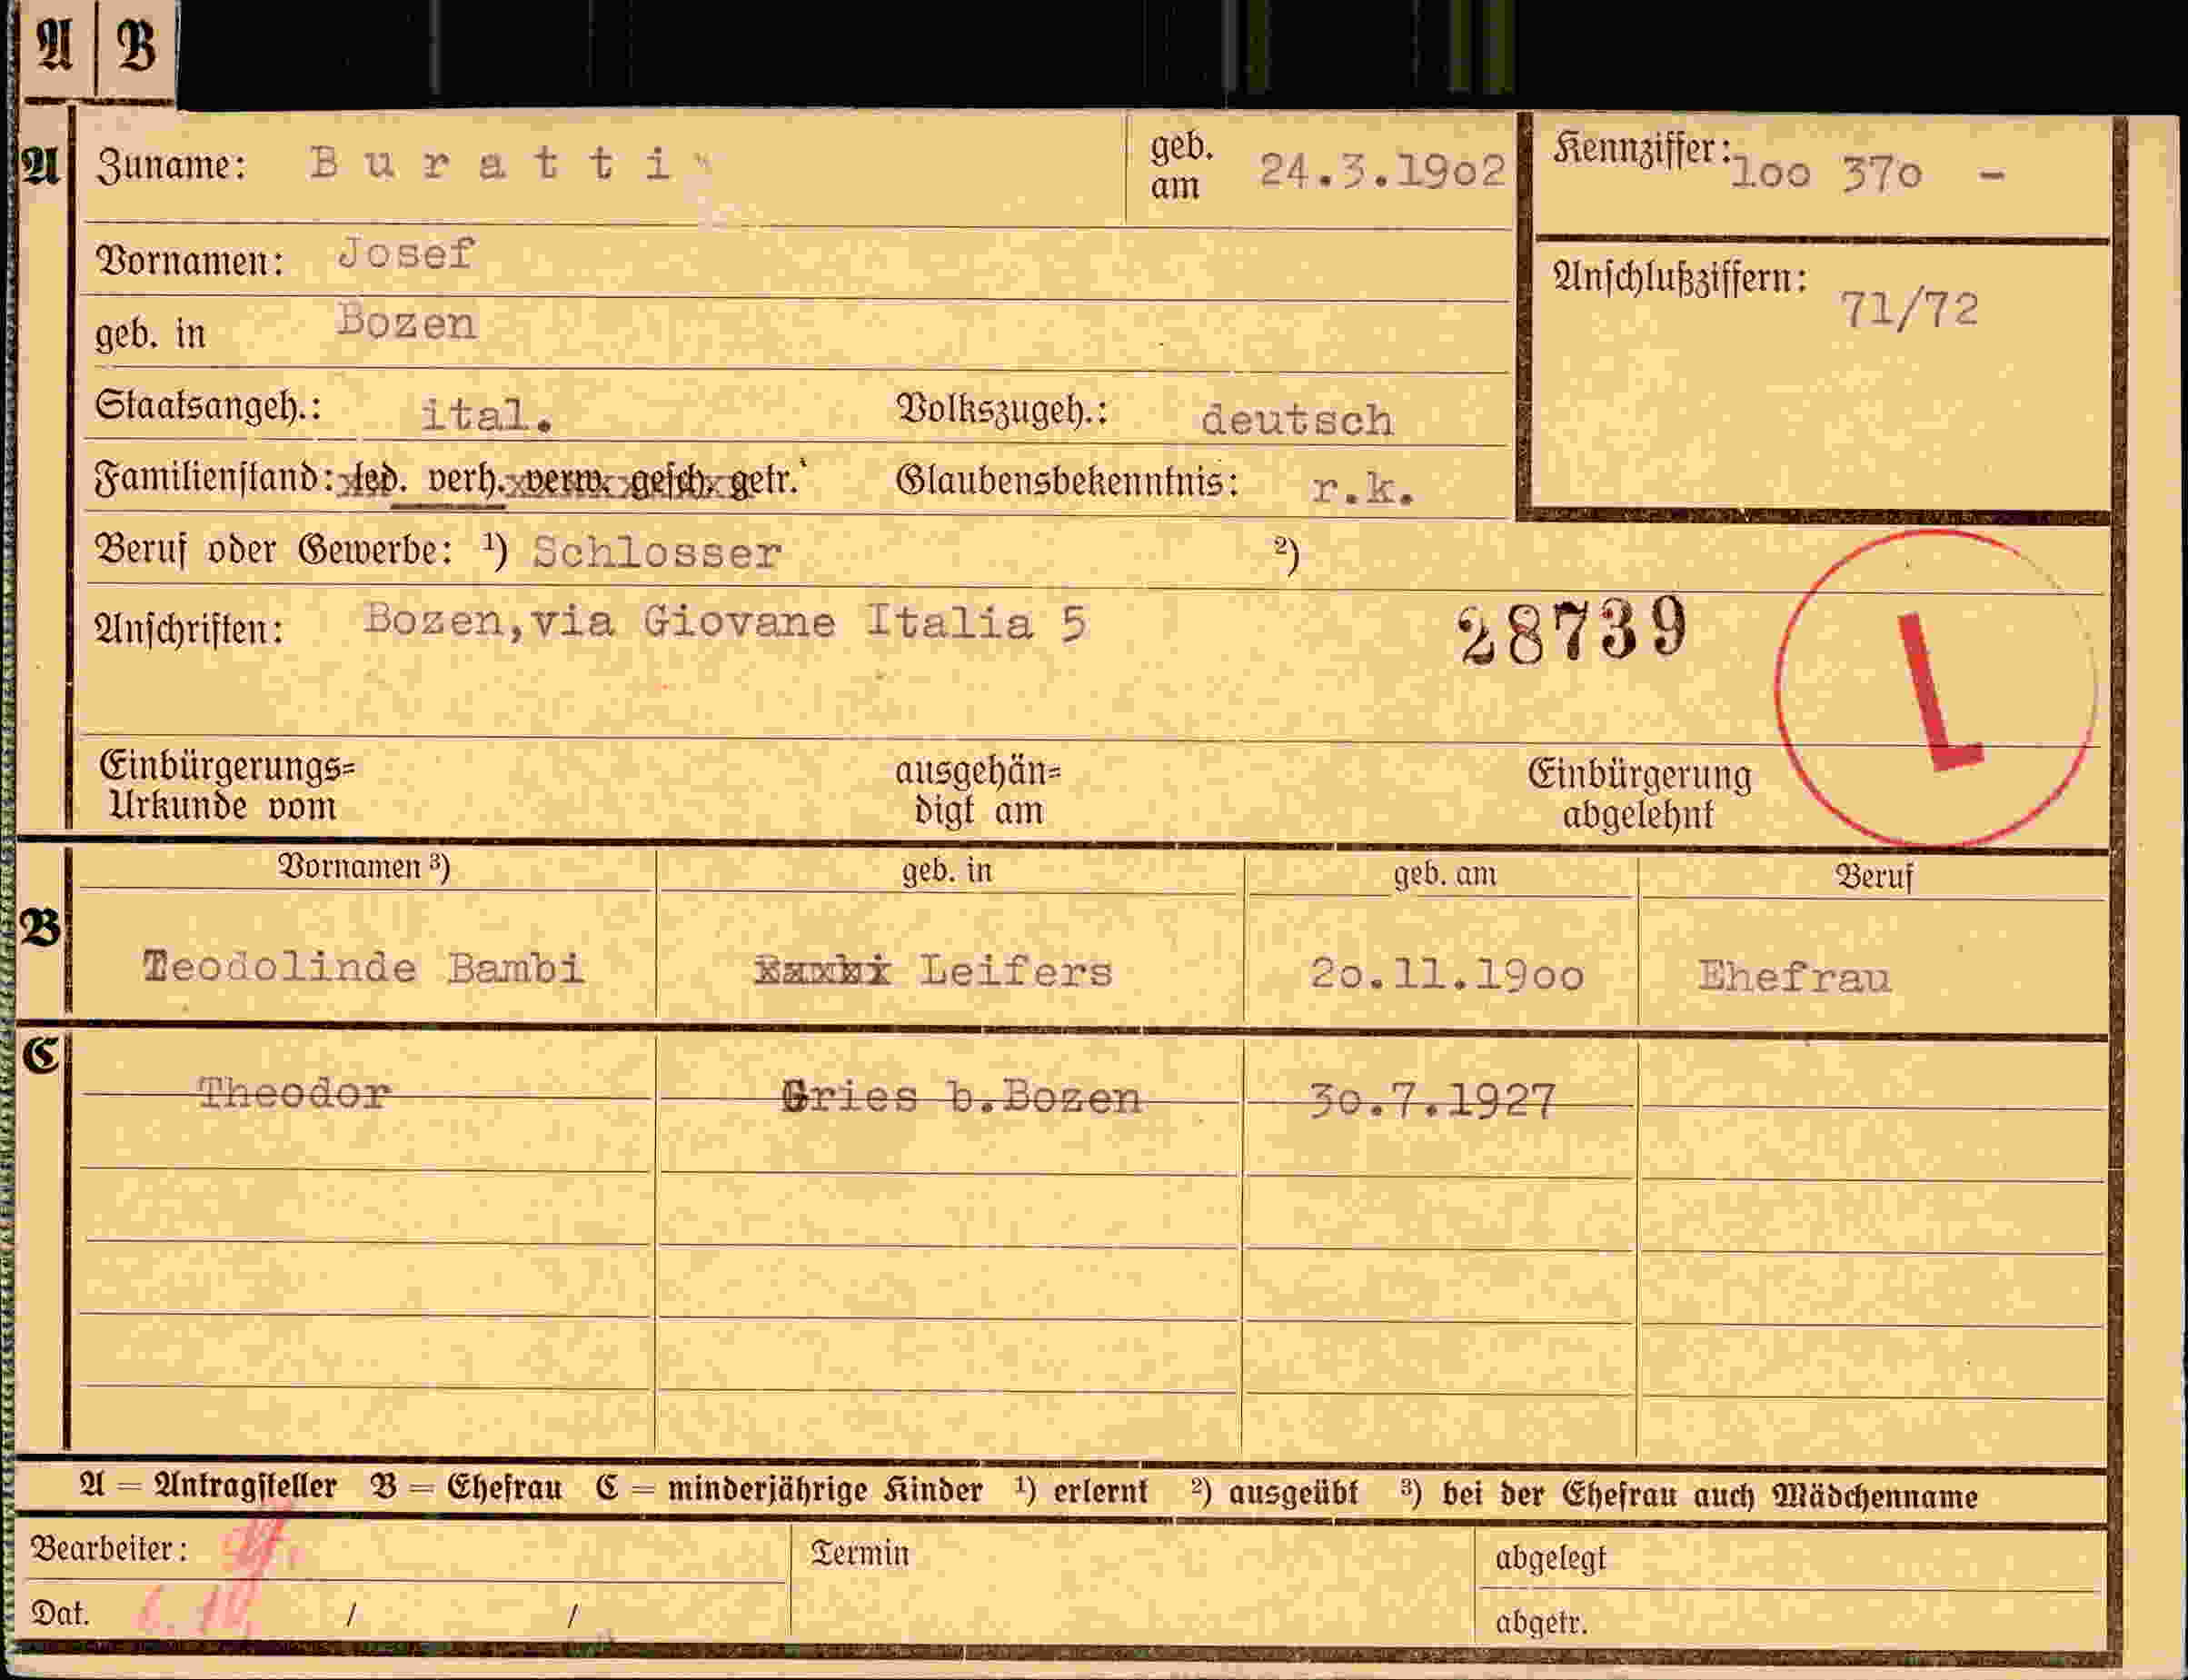 A | B
A Zuname: Buratti geb. am 24.3.1902 Kennziffer: 100 370 -
Vornamen: Josef
Anschlußziffern: 71/72
geb. in Bozen
Staatsangeh.: ital. Volkszugeh.: deutsch
Familienstand: led. verh. verw. gesch. getr. Glaubensbekenntnis: r.k.
Beruf oder Gewerbe: ¹) Schlosser ²)
Anschriften: Bozen, via Giovane Italia 5 28739
L
Einbürgerungs= ausgehän= Einbürgerung
Urkunde vom digt am abgelehnt
Vornamen ³) geb. in geb. am Beruf
B Teodolinde Bambi Leifers 20.11.1900 Ehefrau
C Theodor Gries b.Bozen 30.7.1927
A = Antragsteller B = Ehefrau C = minderjährige Kinder ¹) erlernt ²) ausgeübt ³) bei der Ehefrau auch Mädchenname
Bearbeiter: Termin abgelegt
Dat. / / abgetr.